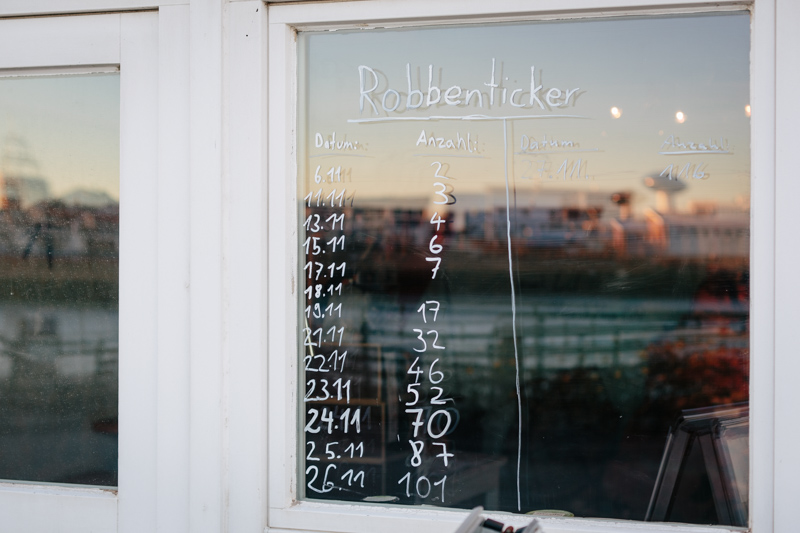 Robbenticker
Datum: Anzahl: Datum: Anzahl:
6.11 2
11.11 3
13.11 4
15.11 6
17.11 7
18.11
19.11 17
21.11 32
22.11 46
23.11 52
24.11 70
25.11 87
26.11 101